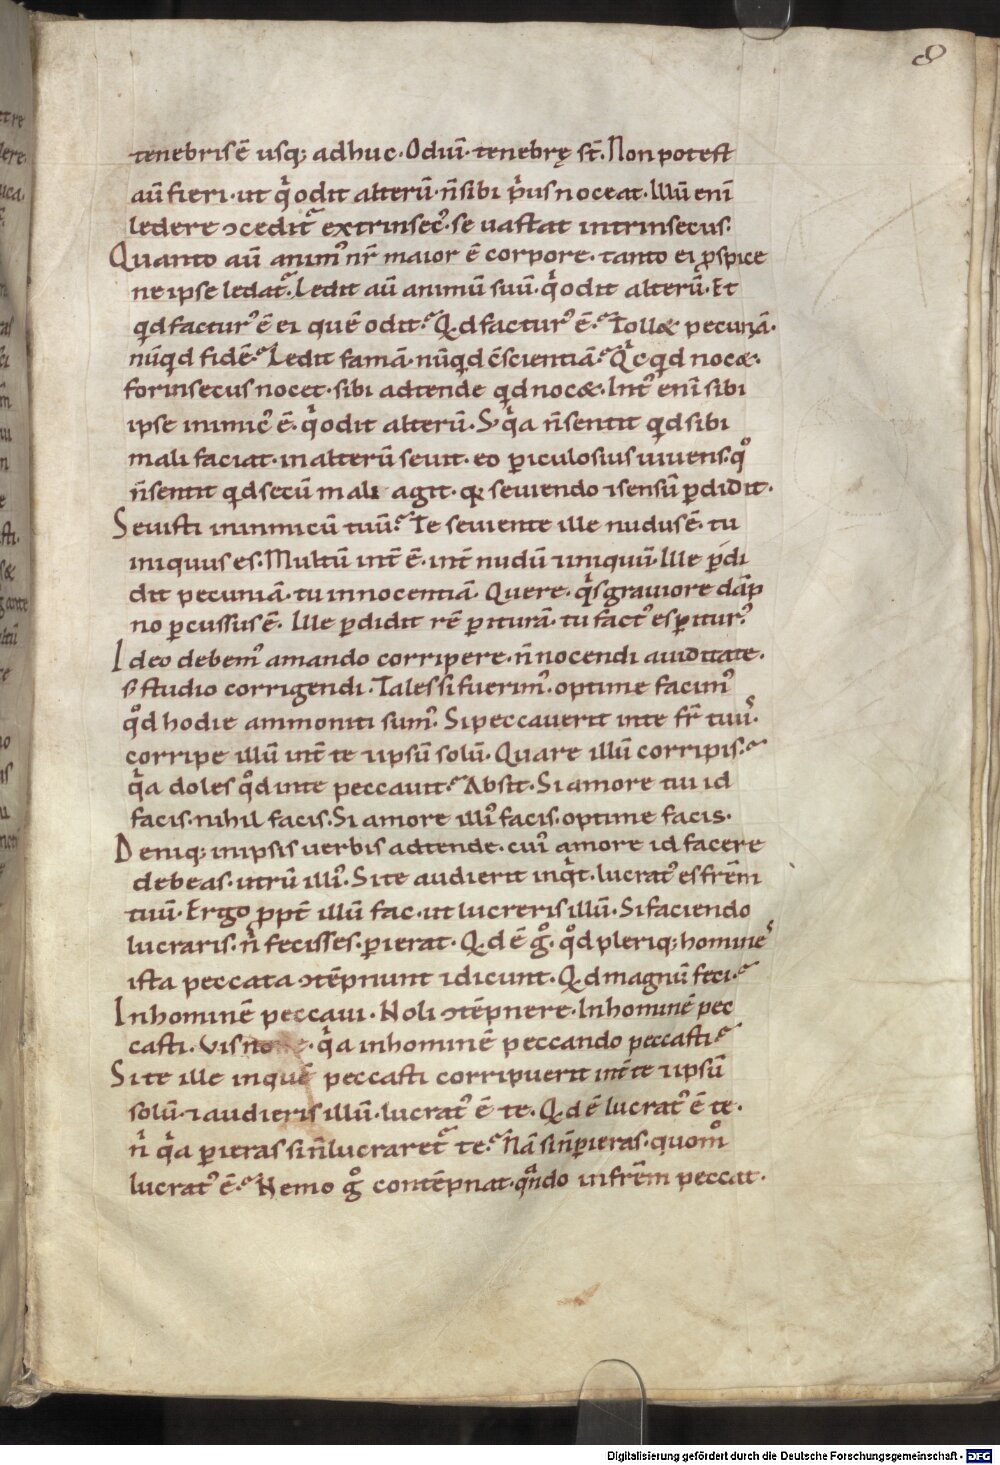 8
tenebris ē usq; adhuc. Odiū. tenebrę st̄. Non potest
aū fieri. ut qͥ odit alterū. n̄ sibi pͥus noceat. Illū enī
ledere ɔcedit extrinsecꝰ. se uastat intrinsecus.
Quanto aū animꝰ nr̄ maior ē corpore. tanto ei ꝓspice
ne ipse ledat᷑. Ledit aū animū suū. qͥ odit alterū. Et
qͥd facturꝰ ē ei quē odit? Qͥd facturꝰ ē? Tollæ pecuniā.
nūqͥd fidē? Ledit famā. nūqͥd ɔ̄scientiā? Qͥcqͥd nocæ.
forinsecus nocet. sibi adtende qͥd nocæ. Intꝰ enī sibi
ipse inimicꝰ ē. qͥ odit alterū. S; qͥa n̄ sentit qͥd sibi
mali faciat. in alterū seuit. eo ꝑiculosius uiuens. qͦ
n̄ sentit qͥd secū mali agit. qꝛ seuiendo ⁊ sensū ꝑdidit.
Seuisti in inimicū tuū? Te seuiente ille nudus ē. tu
iniquus es. Multū int̄ ē. int̄ nudū ⁊ iniquū. Ille ꝑdi
dit pecuniā. tu innocentiā. Quere. qͥs grauiore dāp
no ꝑcussus ē. Ille ꝑdidit rē ꝑiturā. tu factꝰ es ꝑiturꝰ.
Ideo debemꝰ amando corripere. n̄ nocendi auiditate.
s; studio corrigendi. Tales si fuerimꝰ. optime facimꝰ
qͦd hodie ammoniti sumꝰ. Si peccauerit in te fr̄ tuus.
corripe illū int̄ te ⁊ ipsū solū. Quare illū corripis?
qͥa doles qͦd in te peccauit? Absit. Si amore tui id
facis. nihil facis. Si amore illiꝰ facis. optime facis.
Deniq; in ipsis uerbis adtende. cuiꝰ amore id facere
debeas. utrū illiꝰ. Si te audierit inqͥt. lucratꝰ es fr̄em
tuū. Ergo ꝓpt̄ illū fac. ut lucreris illū. Si faciendo
lucraris. nͥ fecisses. ꝑierat. Qͥd ē gͦ. qͦd pleriq; homines
ista peccata ɔtēpnunt ⁊ dicunt. Qͥd magnū feci?
In hominē peccaui. Noli ɔtēpnere. In hominē pec
casti. Vis no . qͥa in hominē peccando peccasti?
Si te ille in quē peccasti corripuerit int̄ te ⁊ ipsū
solū. ⁊ audieris illū. lucratꝰ ē te. Qͥd ē lucratꝰ ē te.
nͥ qͥa ꝑieras si n̄ lucraret᷑ te? Nā si n̄ ꝑieras. quomͦ
lucratꝰ ē? Nemo gͦ contēpnat. qͣndo in fr̄em peccat.
Digitalisierung gefördert durch die Deutsche Forschungsgemeinschaft - DFG